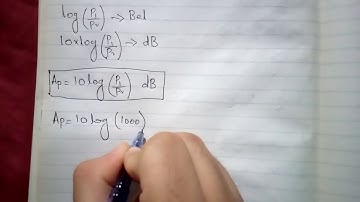 log(P1/Pr) → Bel
10xlog(P1/Pr) → dB
Ap = 10 log(P1/Pr) dB
Ap = 10 log (1000)